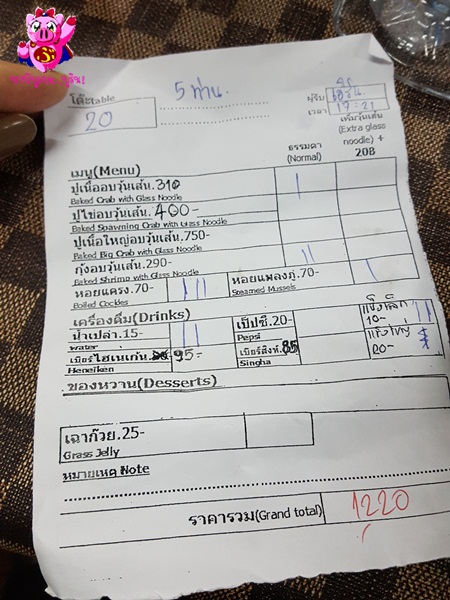 โต๊ะtable
20
5 ท่าน.
เวลา 17:21
ธรรมดา
(Normal)
เพิ่มวุ้นเส้น
(Extra glass
noodle) +
20B
เมนู(Menu)
ปูเนื้ออบวุ้นเส้น.310
Baked Crab with Glass Noodle
ปูไข่อบวุ้นเส้น.400-
Baked Spawning Crab with Glass Noodle
ปูเนื้อใหญ่อบวุ้นเส้น.750-
Baked Big Crab with Glass Noodle
กุ้งอบวุ้นเส้น.290-
Baked Shrimp with Glass Noodle
หอยแครง.70-
Boiled Cockles
หอยแมลงภู่.70-
Steamed Mussels
เครื่องดื่ม(Drinks)
น้ำเปล่า.15-
water
เป๊ปซี่.20-
Pepsi
แข็งเล็ก
10-
เบียร์ไฮเนเก้น.95.-
Heneiken
เบียร์สิงห์.85
Singha
แข็งใหญ่
20-
ของหวาน(Desserts)
เฉาก๊วย.25-
Grass Jelly
หมายเหตุ Note
ราคารวม(Grand total)
1220